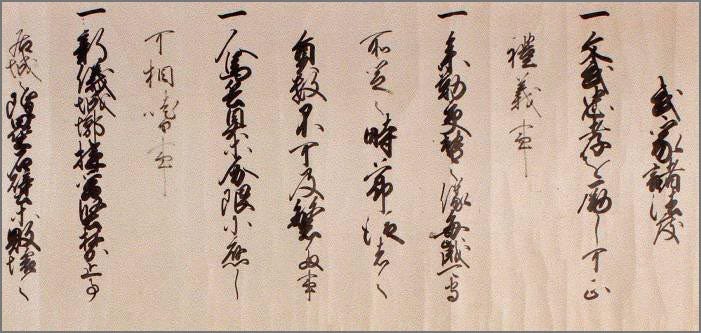 武家諸法度
一 文武忠孝を励し可正
禮義事
一 参勤交替之儀毎歳可守
所定之時節従者之
員数不可及繁多事
一 人馬兵具等分限に應し
可相嗜事
一 新儀城郭構営堅禁止之
居城之隍塁石壁等敗壊之